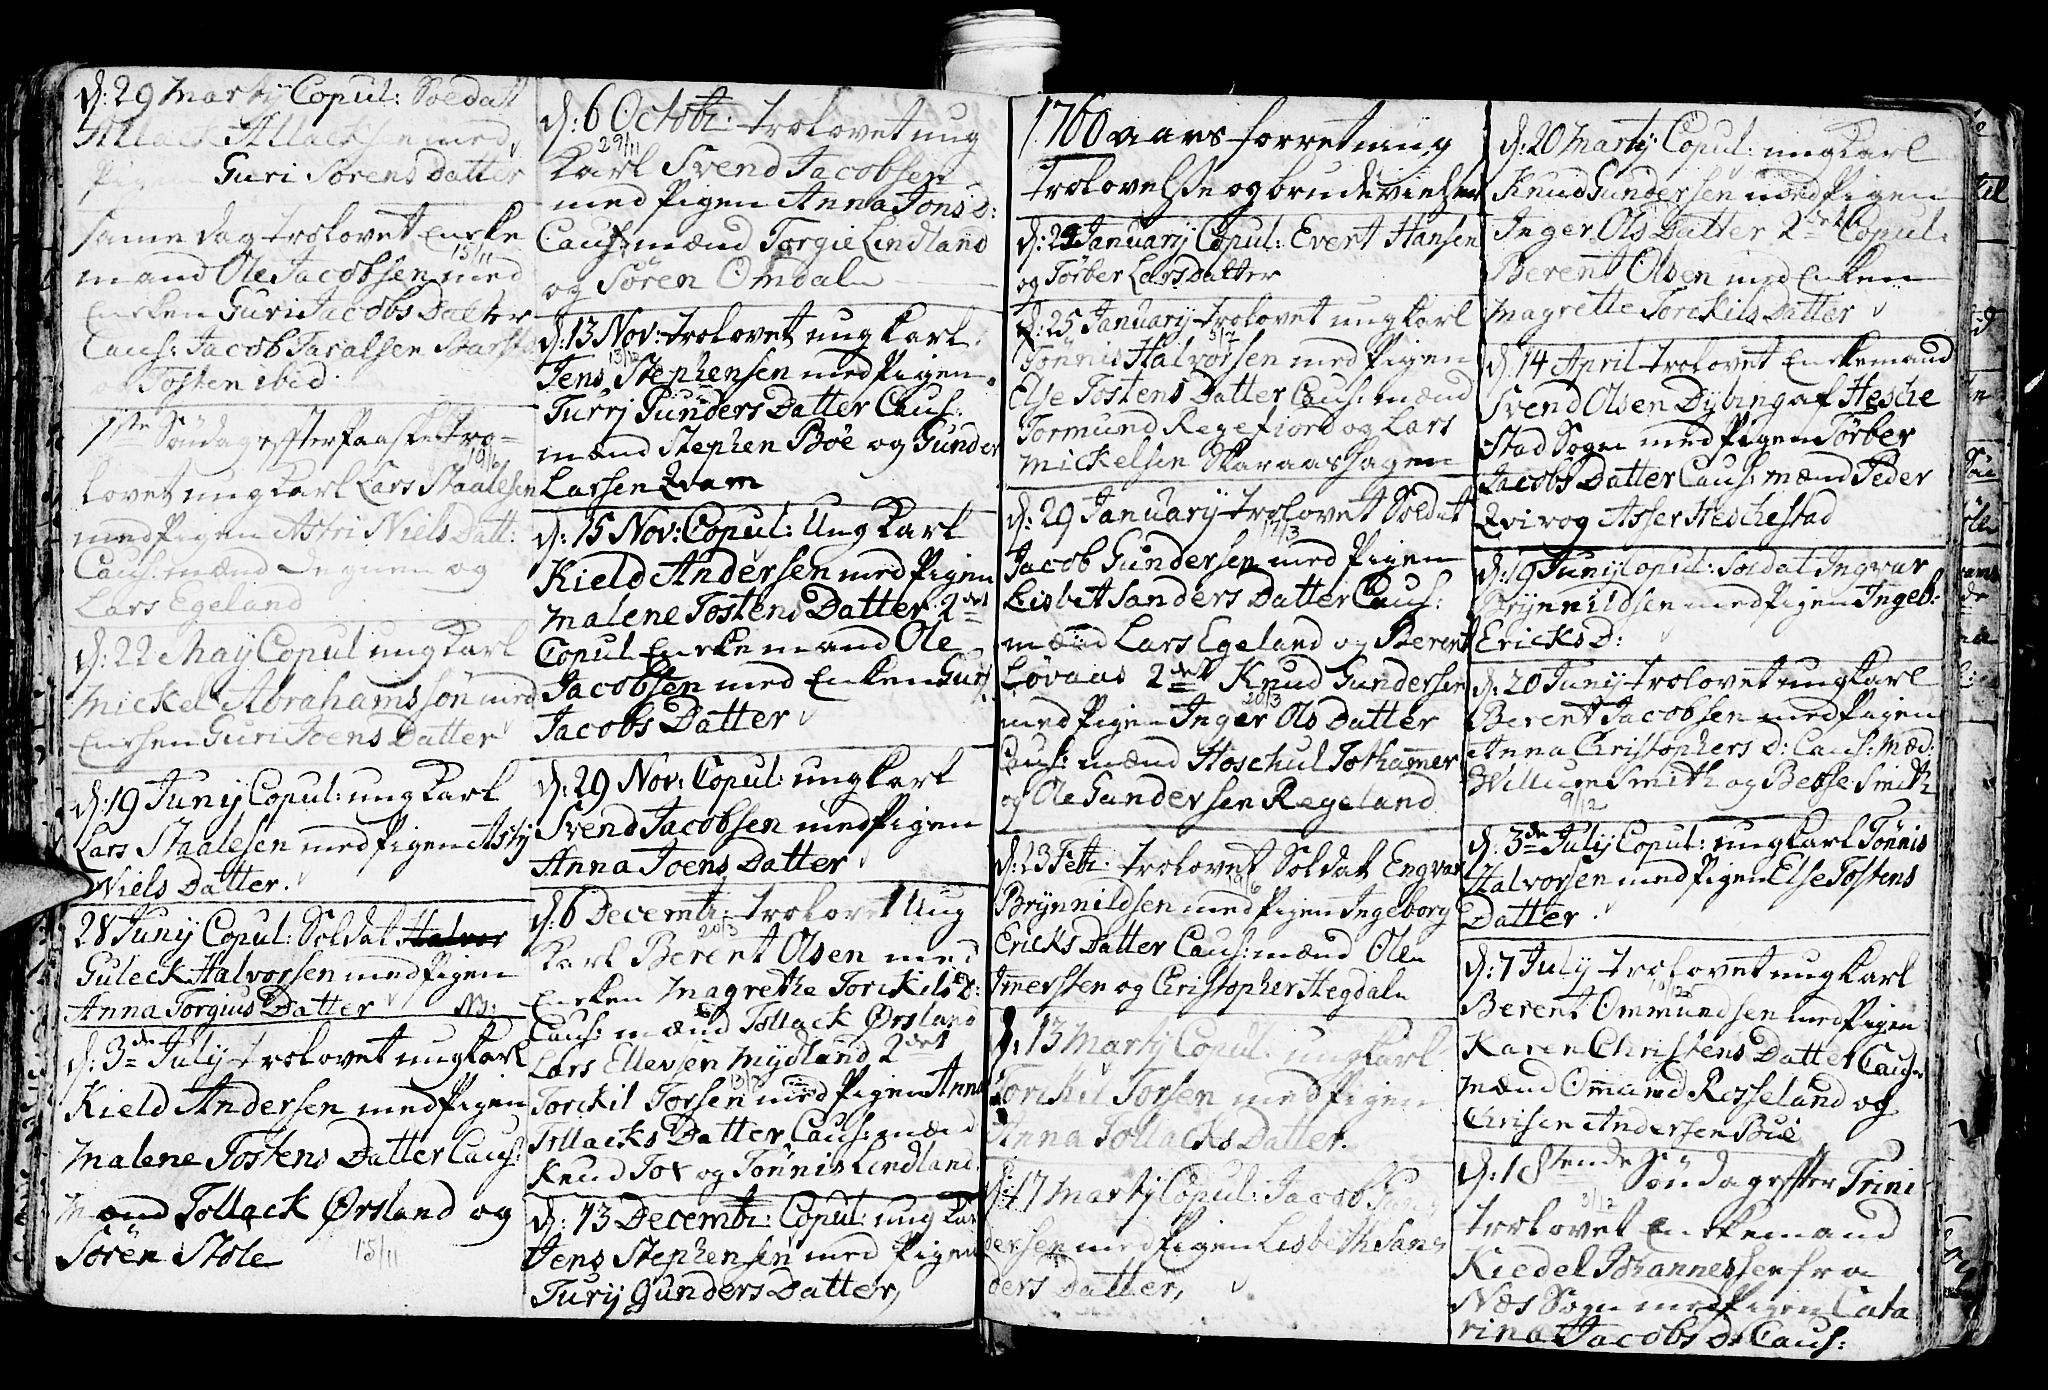 d: 29 Martij Copul: Soldat
Tllack Tllacksen med
Pigen Guri Sørens Datter
Same dag trolovet Encke
15/11
mand Ole Jacobsen med
Encken Guri Jacobs Datter
Caus: Jacob Taralsen
og Tosten ibid.
1ste Søndag effter Paaske tro-
19/6
lovet ung Karl Lars Staalesen
med Pigen Astri Niels Datt:
Caus: mænd Degnen og
Lars Egeland
d: 22 Maij Copul ung Karl
Mickel Abrahamssøn med
Encken Guri Joens Datter
d: 19 Junij Copul: ung Karl
Lars Staalesen med Pigen Astrj
Niels Datter.
28 Junij Copul: Soldat Halvor
Guleck Halvorsen med Pigen
Anna Torgius Datter NB:
d: 3de Julij trolovet ung Karl
Kield Andersen med Pigen
Malene Tostens Datter Caus:
Mænd Tollack Ørsland og
Sören Stole 15/11
d: 6 Octobr: trolovet ung
29/11
Karl Svend Jacobsen
med Pigen Anna Jons D:
Caus: mænd Torgie Lindland
og Sören Omdal
d: 13 Nov: trolovet ung Karl
13/12
Jens Stephensen med Pigen
Turrj Gunders Datter Caus:
mænd Stephen Böe og Gunder
Larssen Qvam
d: 15 Nov: Copul: Ung Karl
Kield Andersen med Pigen
Malene Tostens Datter 2det
Copul Enckemand Ole
Jacobsen med Encken Gurj
Jacobs Datter
d: 29 Nov: Copul: ung Karl
Svend Jacobsen med Pigen
Anna Joens Datter
d: 6 Decembr: trolovet Ung
20/3
Karl Berent Olsen med
Encken Magrethe Torckils D:
Caus: mænd Tollack Ørsland
Lars Ellevsen Mydland 2det
13/3
Torckil Torsen med Pigen Anna
Tollacks Datter Caus: mænd
Knud Tox og Tönnis Lindland
d: 13 Decembr: Copul: ung Karl
Jens Stephensen med Pigen
Turij Gunders Datter,
1760 aars forretning
trolovelse og brudevielser
d: 24 Januarij Copul: Evert Hansen
og Törber Lars Datter
d: 25 Januarij trolovet ung Karl
3/7
Tönnis Halvorsen med Pigen
Else Tostens Datter Caus: mænd
Tormund Regefiord og Lars
Mickelsen Skaraashagen
d: 29 Januarij trolovet Soldat
17/3
Jacob Gundersen med Pigen
Lisbet Sanders Datter Caus:
mænd Lars Egeland og Berent
Lövaas 2det Knud Gundersen
20/3
med Pigen Inger Ols Datter
Caus: mænd Hoschul Tothamer
og Ole Gundersen Regeland
d: 23 Febr: trolovet Soldat Engvar
19/6
Brynnildsen med Pigen Ingeborg
Ericks Datter Caus: mænd Ole
Imersten og Christopher Hegdal
d: 13 Martij Copul: ung Karl
Torckil Torsen med Pigen
Anna Tollacks Datter.
d: 17 Martij Copul: Jacob Gun
dersen med Pigen Lisbeth San
ders Datter,
d: 20 Martij Copul: ung Karl
Knud Gundersen med Pigen
Inger Ols Datter 2det Copul:
Berent Olsen med Encken
Magrette Torckils Datter
d: 14 April trolovet Enckemand
Svend Olsen Dybing af Hesche
stad Sogn med Pigen Törber
Jacobs Datter Caus: mænd Peder
Qvivog Asser Heschestad
d: 19 Junij Copul: Soldat Ingvar
Brynnildsen med Pigen Ingeb:
Ericks D:
d: 20 Junij trolovet ung Karl
Berent Jacobsen med Pigen
Anna Christophers D: Caus: Mæd:
Willum Smith og Besse Smith
9/12
d: 3de Julij Copul: ung Karl Tönnis
Halvorsen med Pigen Else Tostens
Datter
d: 7 July trolovet ung Karl
Berent Ommundsen med Pigen
Karen Christens Datter Caus:
Mænd Omund Rosseland og
Chrisen Andersen Buë
d: 18tende Søndag effter Trini
3/12
trolovet Enckemand
Kiedel Johannessen fra
Næs Sogn med Pigen Cata
rina Jacobs D: Caus: